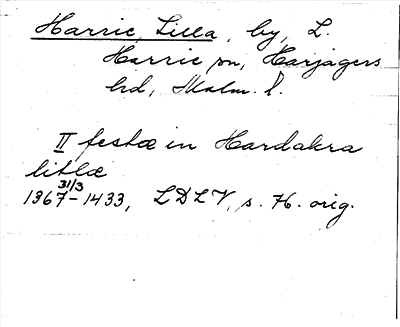 Harrie, Lilla, by, L.
Harrie sn, Harjagers
hd, Malm. l.
II festæ in Hardakra
litlæ
31/3
1367-1433, LDLV, s. 76. orig.